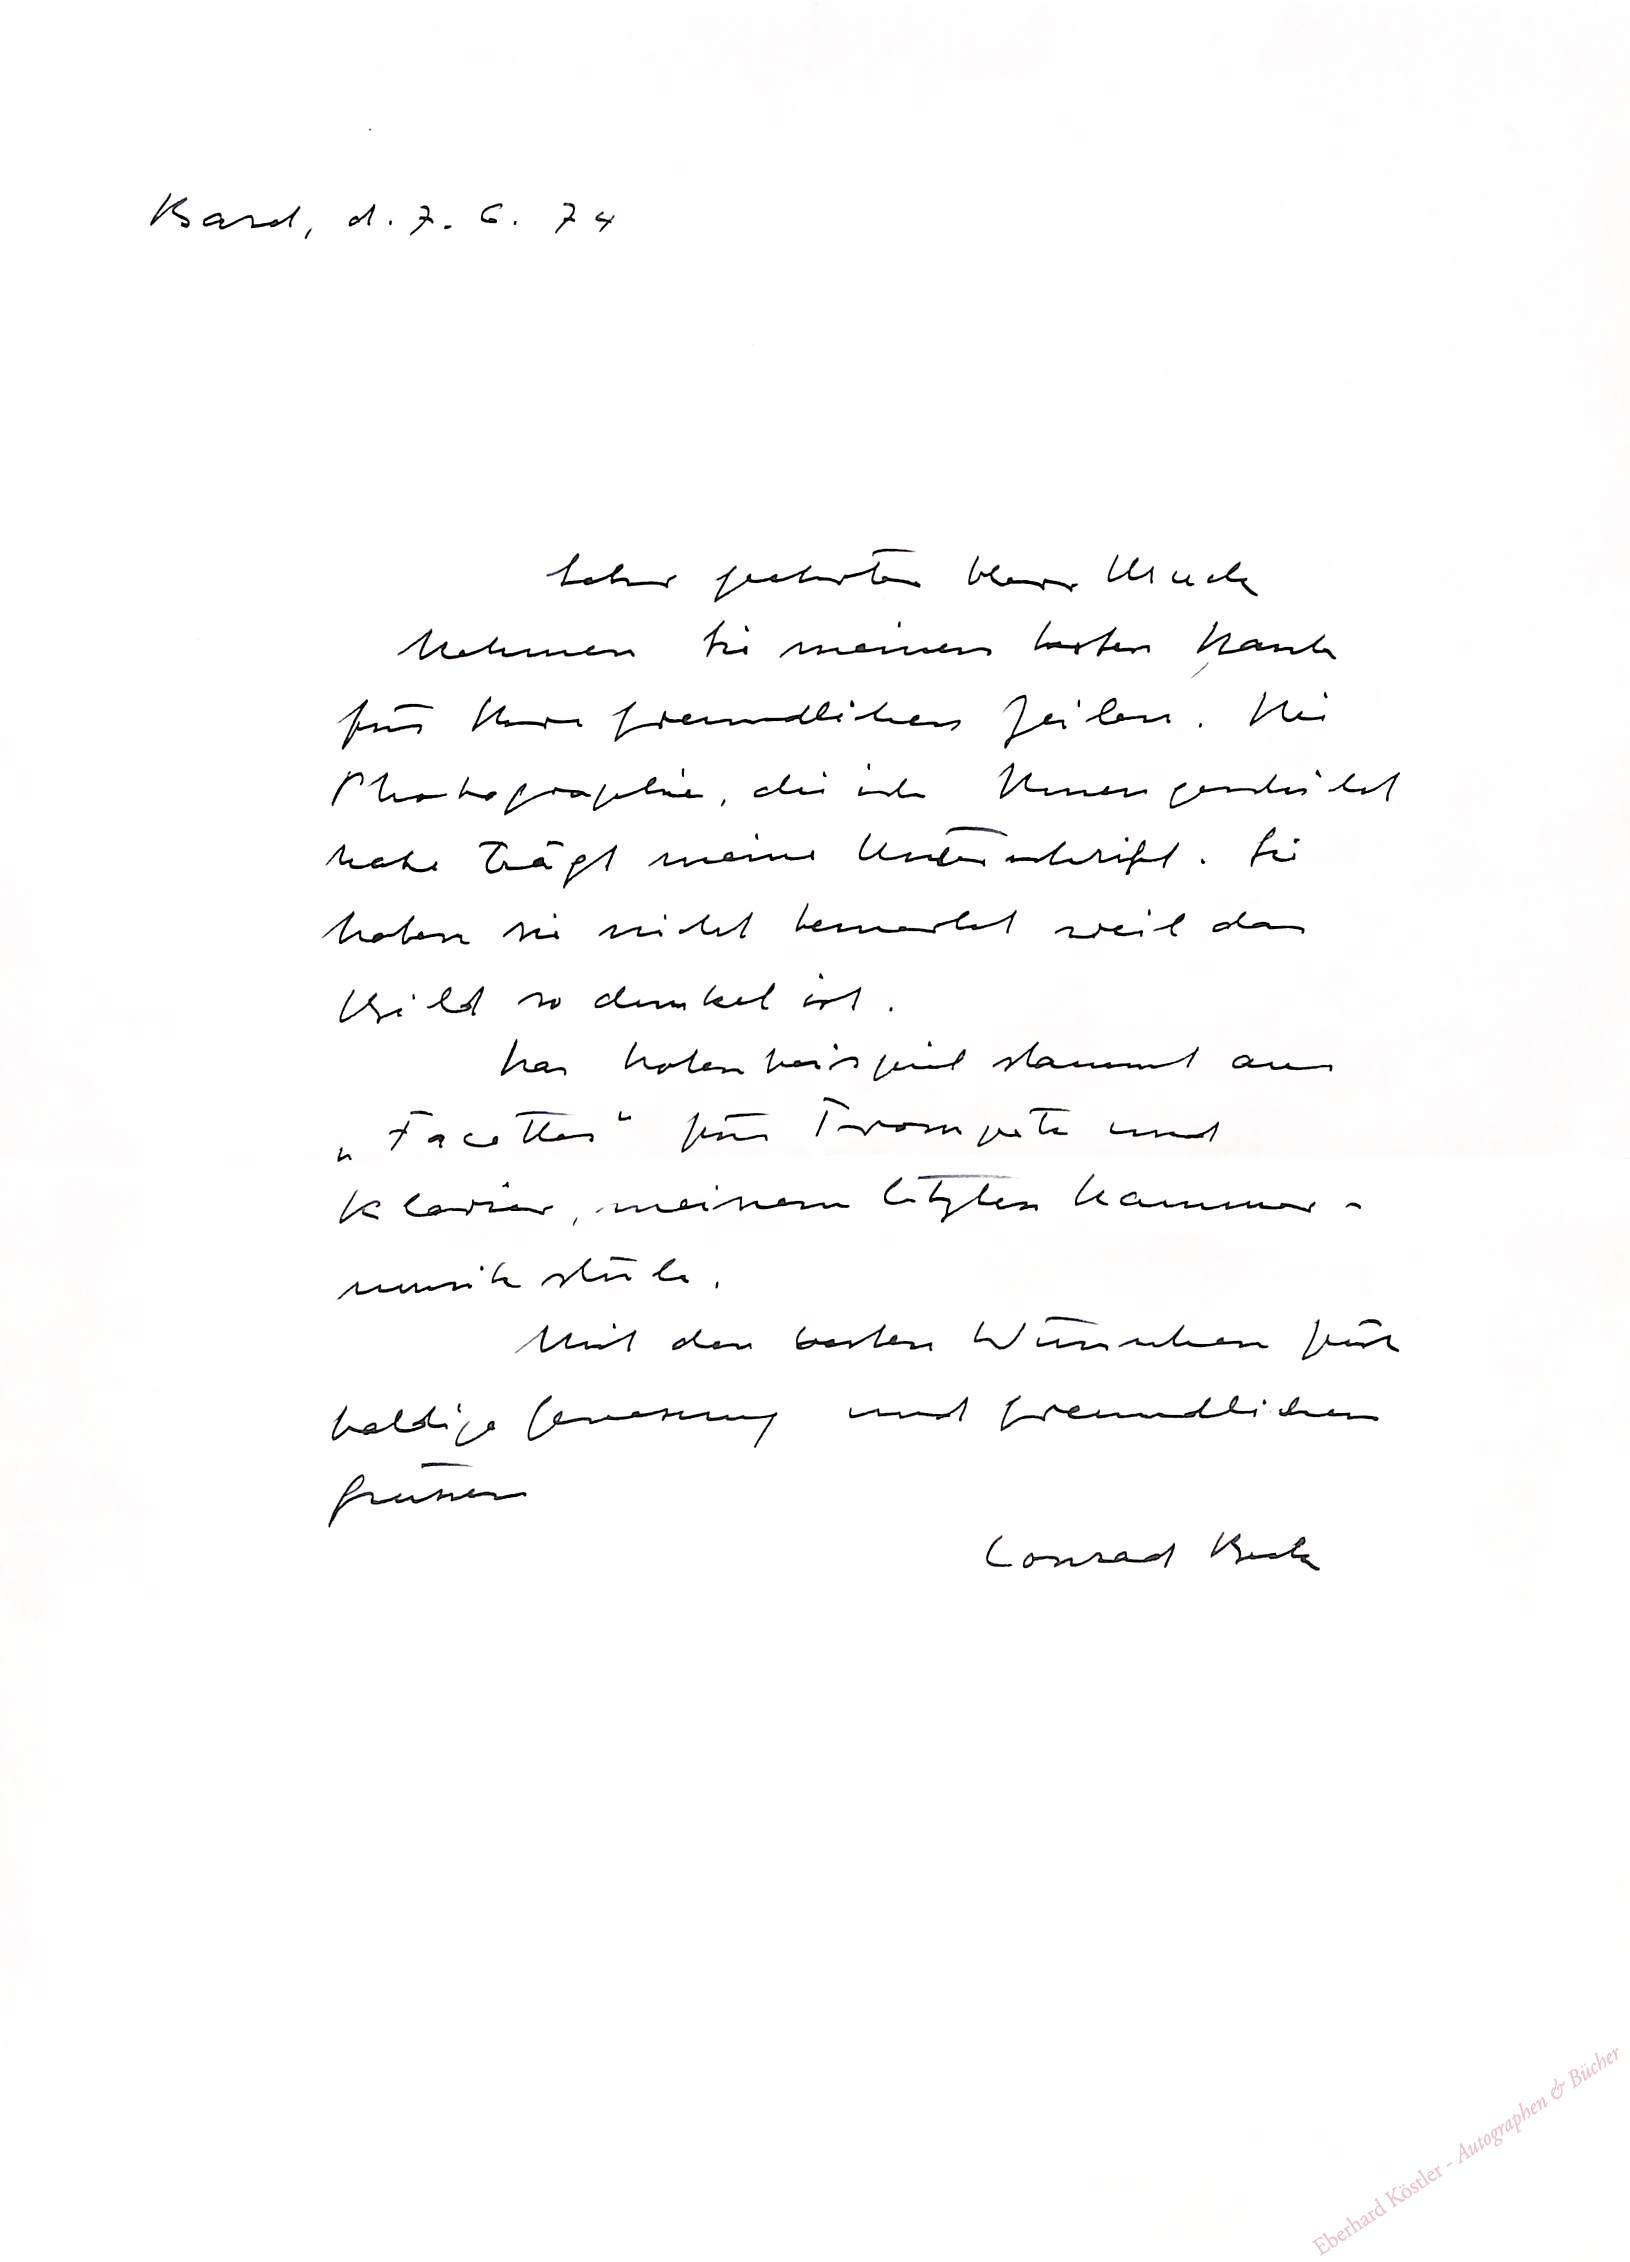 Basel, d. 7. 6. 74
Sehr geehrter Herr Muck
Nehmen Sie meinen besten Dank
für Ihre freundlichen Zeilen. Die
Photographie, die ich Ihnen geschickt
habe trägt meine Unterschrift. Sie
haben sie nicht bemerkt weil das
Bild so dunkel ist.
Das Notenbeispiel stammt aus
„Facettes“ für Trompete und
Klavier, meinem letzten Kammer-
musikstück.
Mit den besten Wünschen für
baldige Genesung und freundlichen
Grüssen
Conrad Beck
Eberhard Köstler - Autographen & Bücher